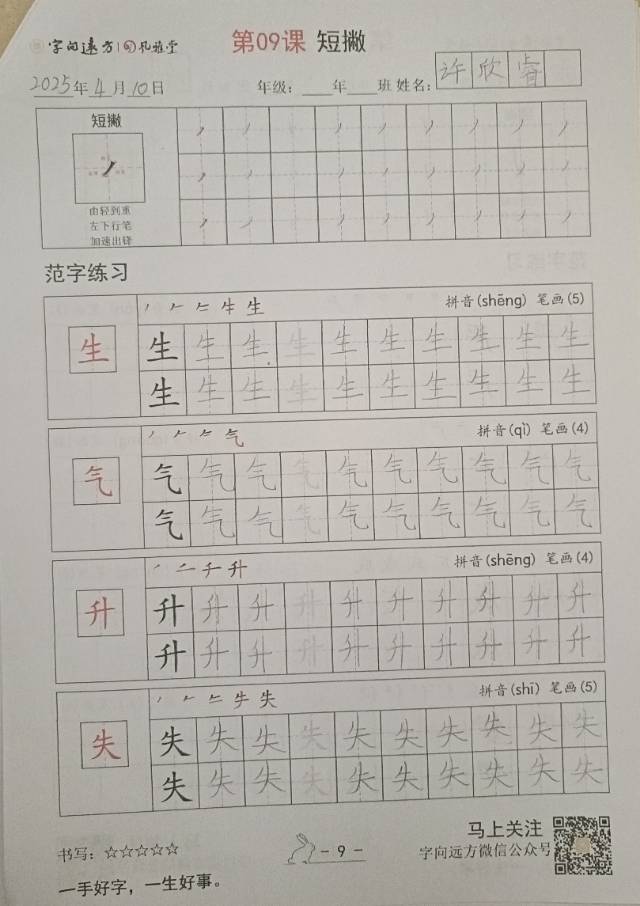 字向远方 风雅堂 第09课 短撇
2025年4月10日 年级：___年___班 姓名：许欣睿
短撇
由轻到重
左下行笔
加速出锋
范字练习
拼音(shēng) 笔画(5)
生 生 生 生 生 生 生 生 生 生 生
生 生 生 生 生 生 生 生 生 生
拼音(qì) 笔画(4)
气 气 气 气 气 气 气 气 气 气 气
气 气 气 气 气 气 气 气 气 气
拼音(shēng) 笔画(4)
升 升 升 升 升 升 升 升 升 升 升
升 升 升 升 升 升 升 升 升 升
拼音(shī) 笔画(5)
失 失 失 失 失 失 失 失 失 失 失
失 失 失 失 失 失 失 失 失 失
马上关注
书写：☆☆☆☆☆ - 9 - 字向远方微信公众号
一手好字，一生好事。